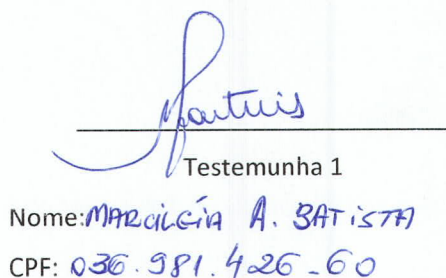 Testemunha 1
Nome: MARCILÉIA A. BATISTA
CPF: 036.981.426-60